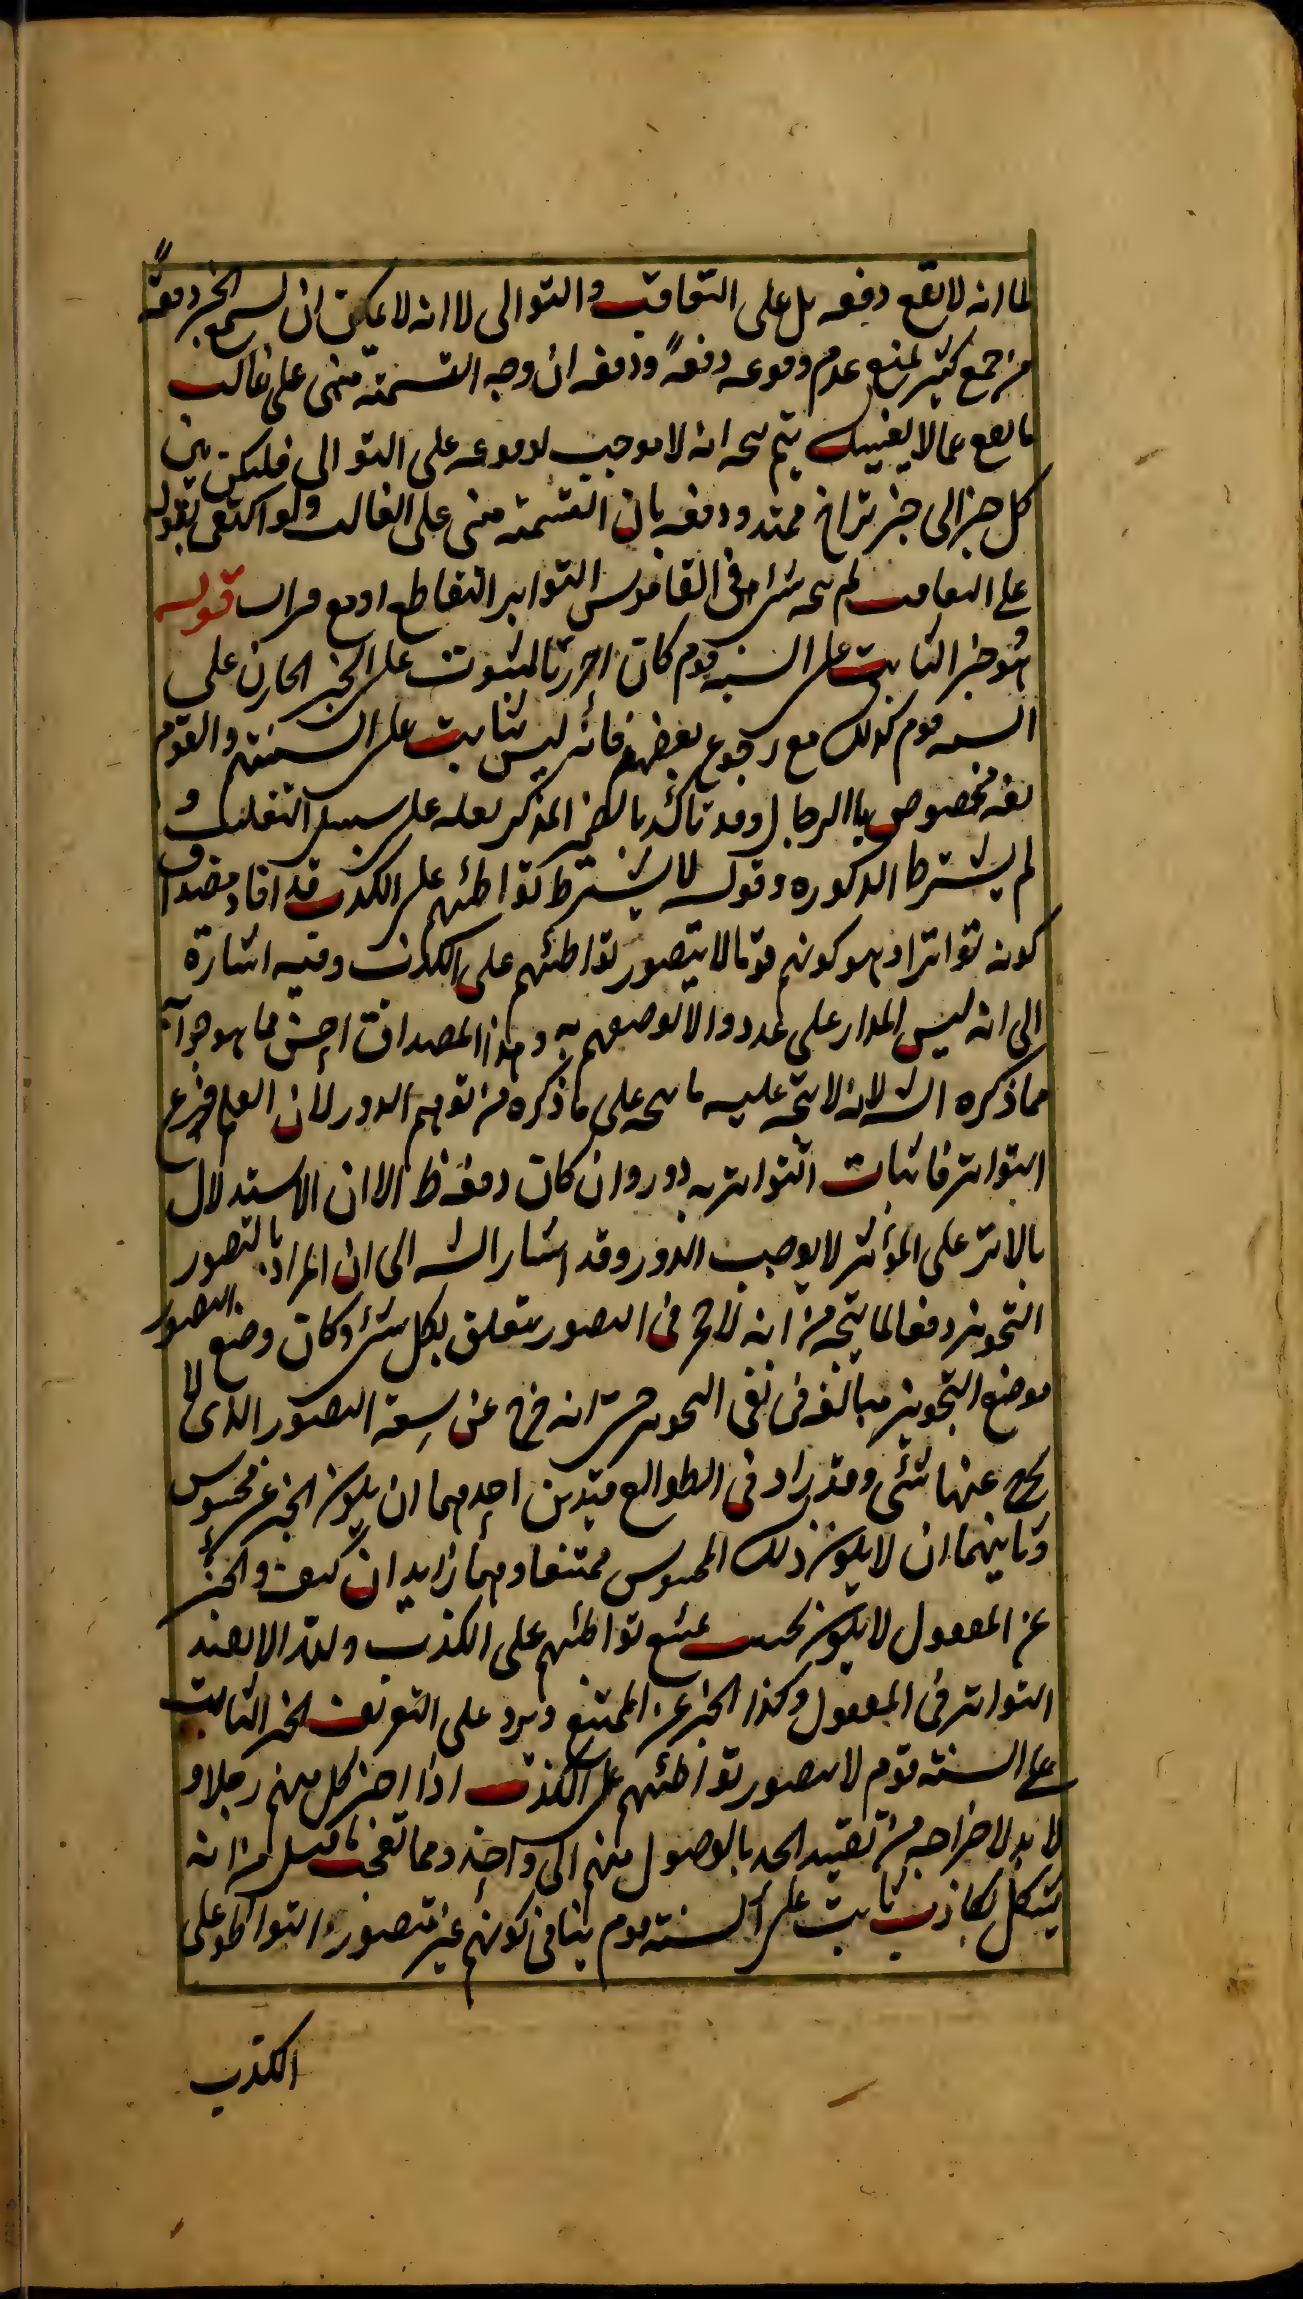 لما انه لا يقع دفعه بل على التعاقب والتوالى لا انه لا يمكن ان يسمع الخبر دفعةً
من جمع كثير لمنع عدم وقوعه دفعةً ودفعه ان وجه التسمية مبنى على غالب
ما يقع مما لا يغنيك يتم يتجه انه لا موجب لوقوعه على التوالى فليكن بين
كل خبر الى خبر تراخ ممتد ودفعه بان التسمية مبنى على الغالب ولو اكتفى بقوله
على التعاقب لم يتجه شئ فى القاموس التواتر التتابع او مع فترات قوله
هو خبر الثابت على السنة قوم كان احترز بالثبوت على الخبر الجارى على
السنة قوم كذلك مع رجوع بعضهم فانه ليس بثابت على السنتهم والقوم
لغة مخصوص باالرجال وقد تأكد بالضمير المذكر لعله على سبيل التغليب و
لم يشترط الذكوره وقوله لا يشترط تواطئهم على الكذب قد افاد مصداق
كونه تواترا وهو كونهم قوما لا يتصور تواطئهم على الكذب وفيه اشارة
الى انه ليس المدار على عدد والا لوصفهم به وهذا المصداق احسن مما هو جرابه
مما ذكره الش لانه لا يتجه عليه ما يتجه على ما ذكره من توهم الدور لان العلم فرع
التواتر فاثبات التواتر به دور وان كان دفعه ظ الا ان الاستدلال
بالاثر على المؤثر لا يوجب الدور وقد اشار الش الى ان المراد بالتصور
التجويز دفعا لما يتجه من انه لا حجر فى التصور يتعلق بكل شئ وكان وضع التصور
موضع التجويز مبالغه فى نفى التجويز حتى انه خرج عن سعة التصور الذى لا
يخرج عنها شئى وقد زاد فى الطوالع قيدين احدهما ان يكون الخبر عن محسوس
وثانيهما ان لا يكون ذلك المحسوس ممتنعا وهما زايدان كيف والخبر
عن المعقول لا يكون بحيث يمتنع تواطئهم على الكذب ولهذا لا يفيد
التواتر فى المعقول وكذا الخبر عن الممتنع ويرد على التعريف الخبر الثابت
على السنة قوم لا يتصور تواطئهم على الكذب اذا اخبر كل منهم رجلا و
لا بد لاخراجه من تقييد الحد بالوصول منهم الى واحد ومما من انه
يشكل بكاذب ثابت على السنة قوم ينافى كونهم غير متصور التواطؤ على
الكذب